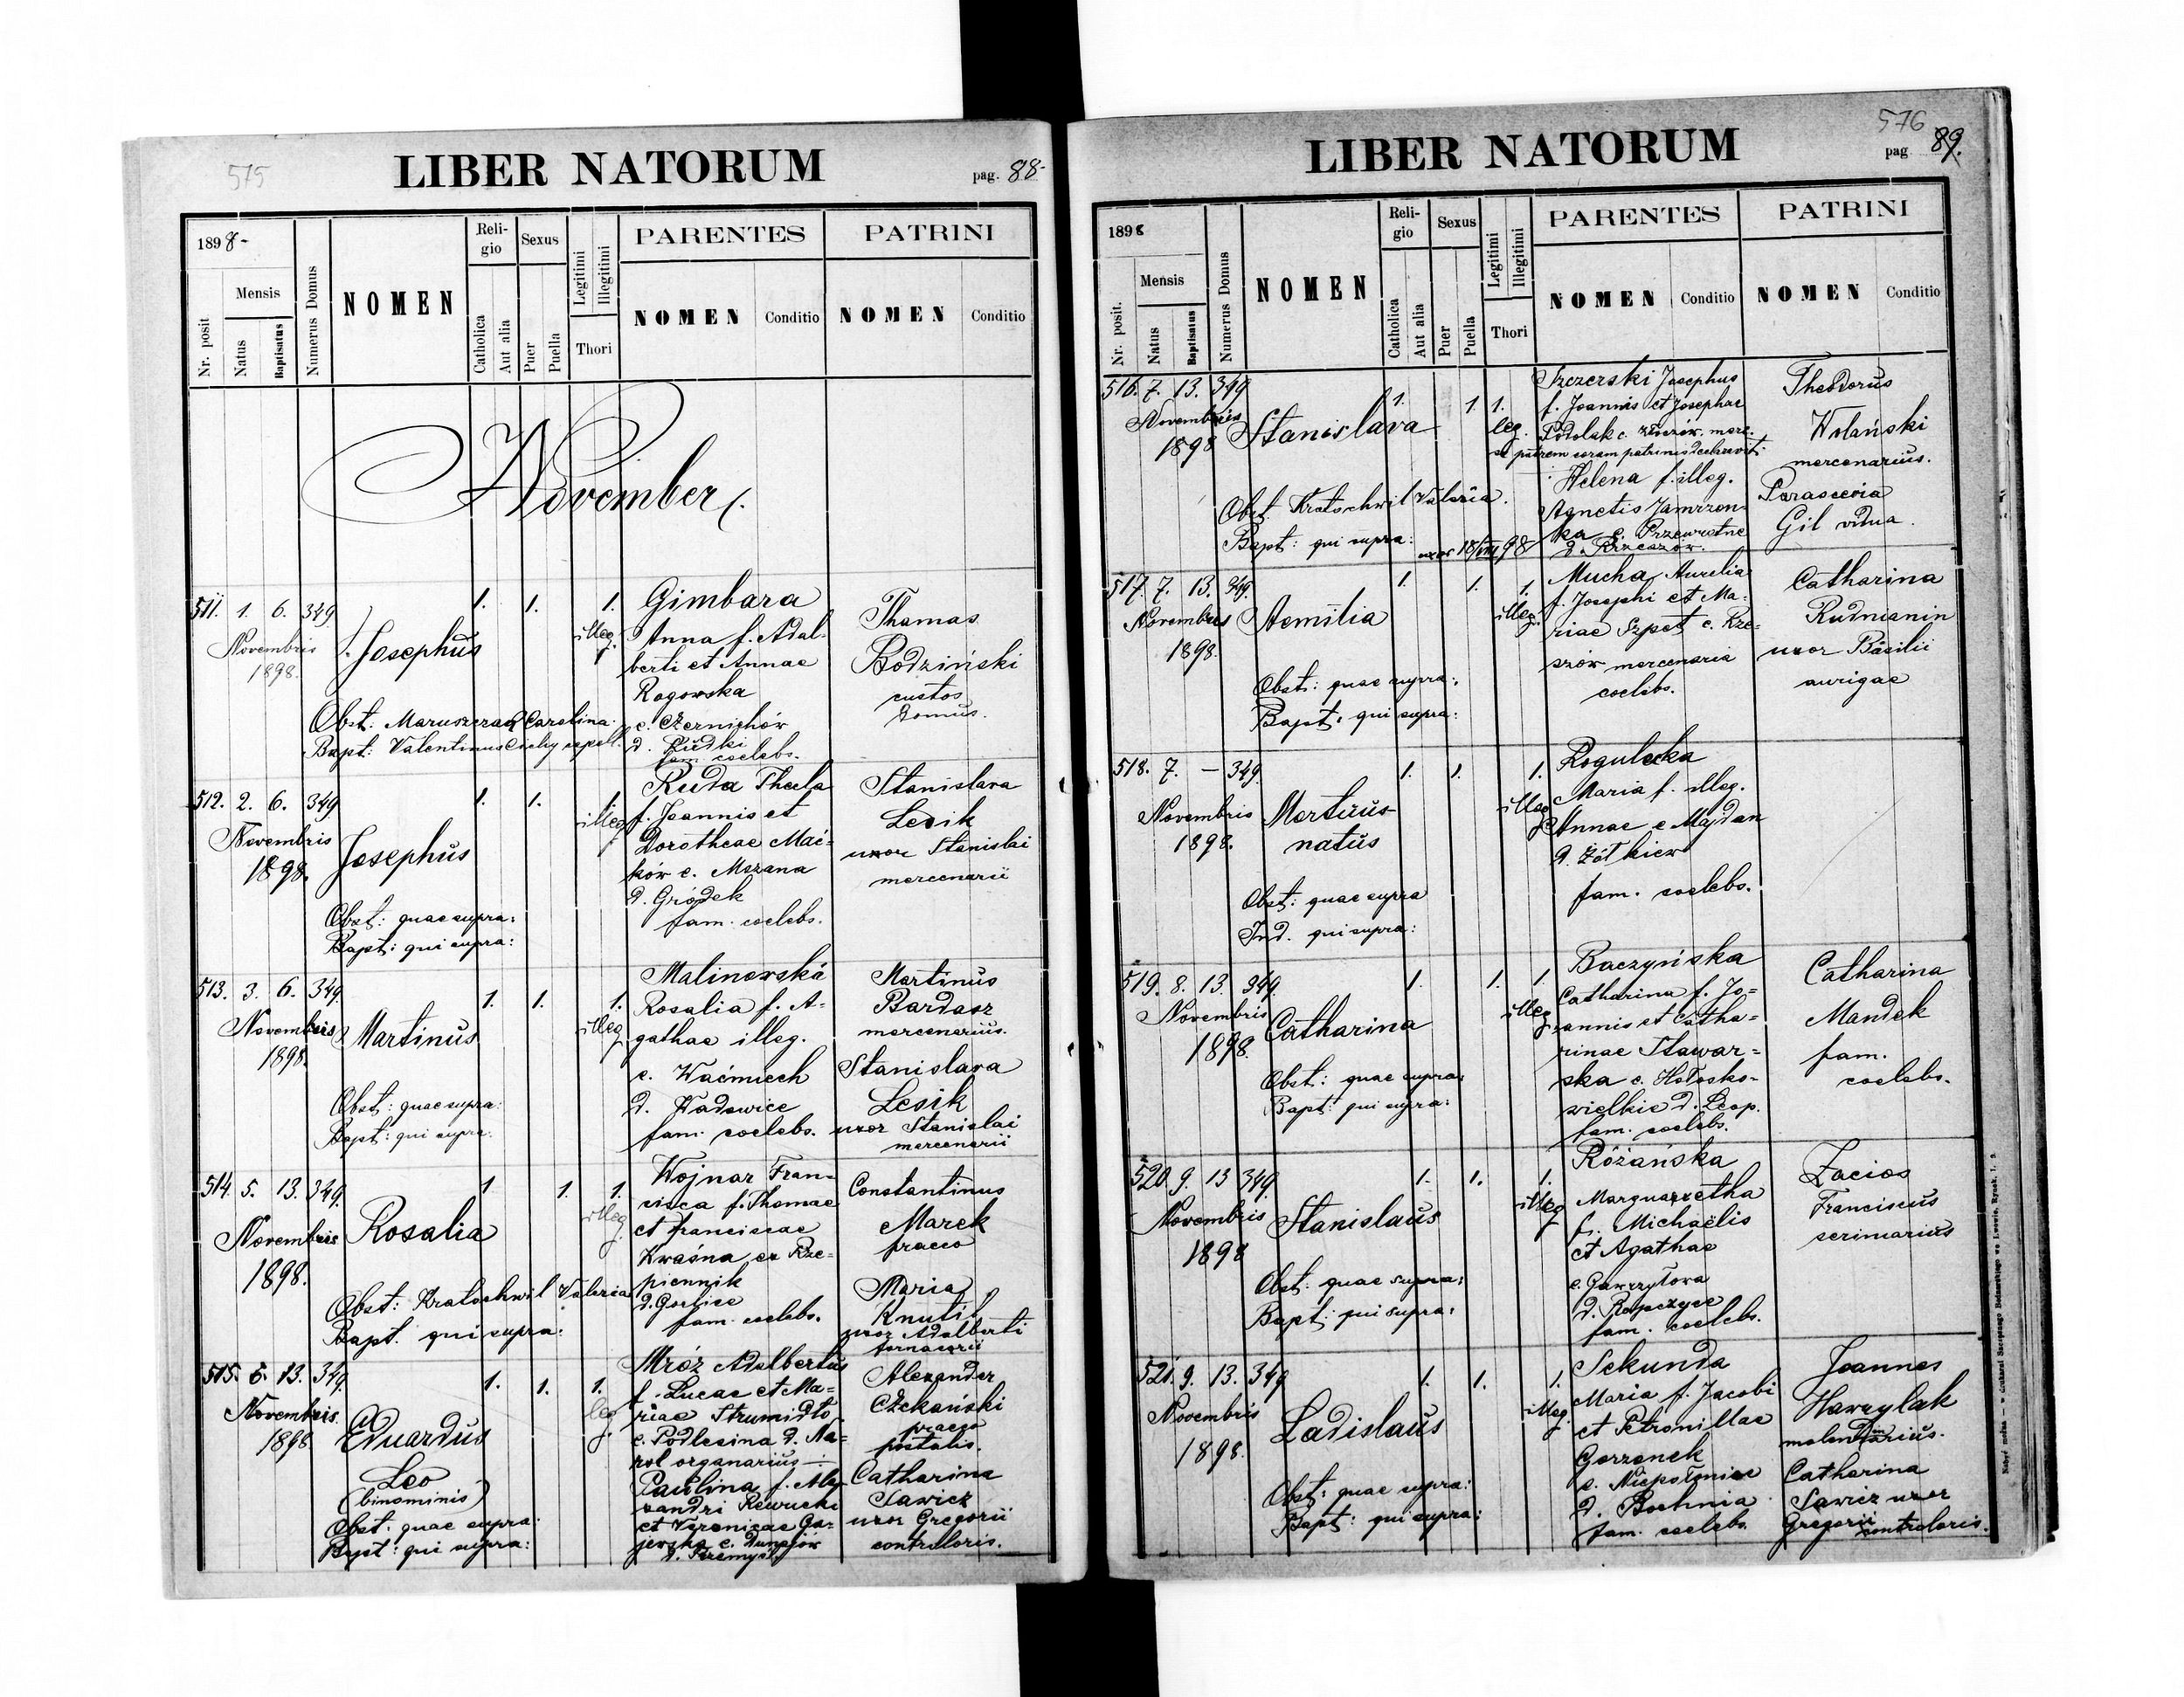 575
LIBER NATORUM
pag. 88-
1898-
Nr. posit
Mensis
Natus
Baptisatus
Numerus Domus
NOMEN
Religio
Catholica
Aut alia
Sexus
Puer
Puella
Legitimi
Illegitimi
Thori
PARENTES
NOMEN
Conditio
PATRINI
NOMEN
Conditio
November
511. 1. 6. 349
Novembris
1898.
Josephus
Obst: Maruszczak Carolina
Bapt: Valentinus Cichy capell.
1. 1. 1.
illeg.
Gimbara
Anna f. Adal-
berti et Annae
Rogowska
e. Czernichów
d. Rudki
fam. coelebs.
Thomas
Bodziński
custos
domus.
512. 2. 6. 349
Novembris
1898.
Josephus
Obst: quae supra:
Bapt: qui supra:
1. 1. 1.
illeg.
Ruda Thecla
f. Joannis et
Dorotheae Mać-
ków e. Mszana
d. Gródek
fam. coelebs.
Stanislava
Lesik
uxor Stanislai
mercenarii
513. 3. 6. 349.
Novembris
1898.
Martinus
Obst: quae supra:
Bapt: qui supra:
1. 1. 1.
illeg
Malinowska
Rosalia f. A-
gathae illeg.
e. Waćmiech
d. Wadowice
fam. coelebs.
Martinus
Bardasz
mercenarius.
Stanislava
Lesik
uxor Stanislai
mercenarii
514. 5. 13. 349.
Novembris
1898.
Rosalia
Obst: Kratochwil Valeria
Bapt. qui supra:
1 1. 1.
illeg.
Wojnar Fran-
cisca f. Thomae
et Franciscae
Kwaśna ex Rze-
piennik
d. Gorlice
fam. coelebs.
Constantinus
Marek
praeco
Maria
Knutil
uxor Adalberti
fornacarii
515. 6. 13. 349.
Novembris.
1898.
Eduardus
Leo
(binominis)
Obst: quae supra:
Bapt: qui supra:
1. 1. 1.
leg.
Mróz Adalbertus
f. Lucae et Ma-
riae Strumidło
e. Podlesina d. Na-
rol organarius
Paulina f. Ale-
xandri Rewucki
et Veronicae Ga-
jewska e. Dunajów
d. Przemyśl
Alexander
Czekański
praeco
postalis.
Catharina
Sawicz
uxor Gregorii
controloris.
576
LIBER NATORUM
pag 89.
1898
Nr. posit.
Mensis
Natus
Baptisatus
Numerus Domus
NOMEN
Religio
Catholica
Aut alia
Sexus
Puer
Puella
Legitimi
Illegitimi
Thori
PARENTES
NOMEN
Conditio
PATRINI
NOMEN
Conditio
516. 7. 13. 349
Novembris
1898
Stanislava
Obst. Kratochwil Valeria.
Bapt: qui supra:
1. 1. 1.
leg.
Josephus
f. Joannis et Josephae
Podolak e.
se patrem coram patrinis declaravit
Helena f. illeg.
Agnetis Jamrzon-
ka e. Przewrotne
d. Rzeszów.
Theodorus
Wolański
mercenarius.
Parascevia
Gil vidua.
517. 7. 13. 349.
Novembris
1898.
Aemilia
Obst: quae supra:
Bapt: qui supra:
1. 1. 1.
illeg.
Mucha Aurelia
f. Josephi et Ma-
riae Szpet e. Rze-
szów mercenaria
coelebs.
Catharina
Rudnianin
uxor Basilii
aurigae
518. 7. – 349.
Novembris
1898.
Mortuus
natus
Obst: quae supra
Ind. qui supra:
1. 1. 1.
illeg.
Rogulecka
Maria f. illeg.
Annae e Majdan
d. Żółkiew
fam. coelebs.
519. 8. 13. 349.
Novembris
1898.
Catharina
Obst: quae supra:
Bapt: qui supra:
1. 1. 1.
illeg
Baczyńska
Catharina f. Jo-
annis et Catha-
rinae Stawar-
ska e. Hołosko-
wielkie d. Leop.
fam. coelebs.
Catharina
Mandek
fam.
coelebs.
520. 9. 13 349.
Novembris
1898
Stanislaus
Obst: quae supra:
Bapt: qui supra:
1. 1. 1.
illeg
Różańska
Margarethа
f. Michaëlis
et Agathae
e. Gawrzyłowa
d. Ropczyce
fam. coelebs.
Zacios
Franciscus
scriniarius
521. 9. 13. 349
Novembris
1898.
Ladislaus
Obst: quae supra:
Bapt: qui supra:
1. 1. 1.
illeg.
Sekunda
Maria f. Jacobi
et Petronillae
Gorzonek
e. Niepołomice
d. Bochnia
fam. coelebs.
Joannes
Hawrylak
molendinarius.
Catharina
Sawicz uxor
Gregorii
controloris.